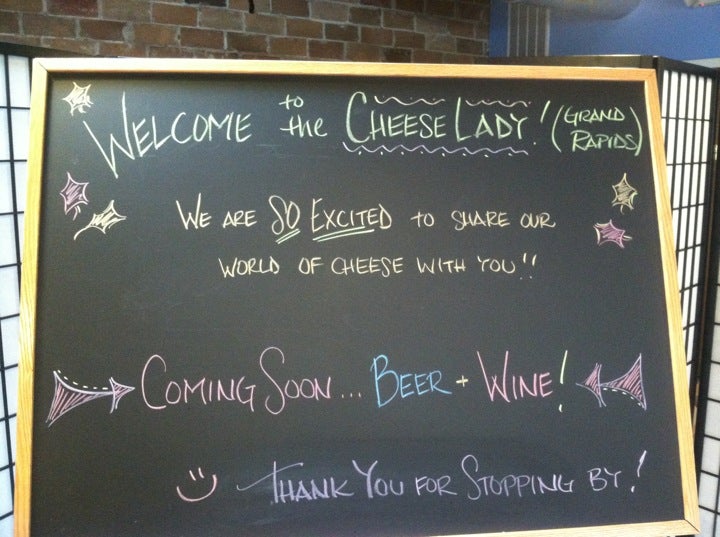 WELCOME to the CHEESE LADY! (GRAND RAPIDS)
WE ARE SO EXCITED TO SHARE OUR
WORLD OF CHEESE WITH YOU!!
COMING SOON... BEER + WINE!
THANK YOU FOR STOPPING BY!